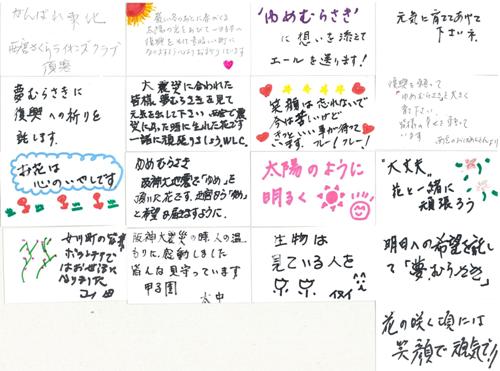 がんばれ東北
西宮さくらライオンズクラブ
寒い冬のあとに春がくる
太陽の光をあびて
復興を
"ゆめむらさき"
に想いを添えて
エールを送ります!
元気に育ててあげて
下さいネ
夢むらさきに
復興への祈りを
託します。
大震災に会われた
皆様 夢むらさきを見て
元気を出して下さい
震災に会った時に生れた花です
一緒に頑張りましょうW.L.C.
笑顔は忘れないで
今は苦しいけど
きっといい事が待って
います。フレー!フレー!
復興を願って
ゆめむらさきを大きく
育て下さい
お花は
心のいやしです
ゆめむらさき
阪神大地震で「ゆめ」を
頂いた花です。
と希望を届きますように。
太陽のように
明るく
"大丈夫"
花と一緒に
頑張ろう
女川町の
ボランテアで
はお世話に
なりました
阪神大震災の時 人の温
もりに、感動しました
皆んな見守っています
甲子園
生物は
見ている人を
明日への希望を託し
て「夢むらさき」
花の咲く頃には
笑顔で元気で!!